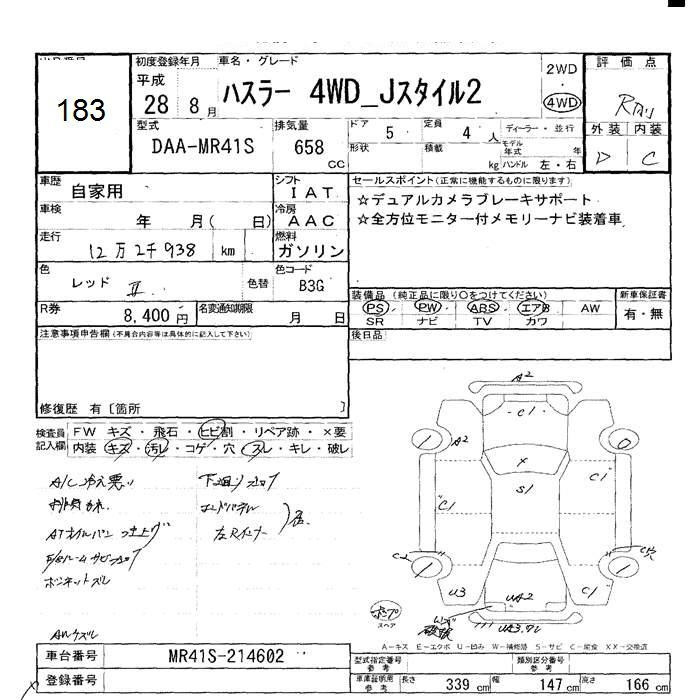 183
初度登録年月
車名・グレード
平成
28 8月
ハスラー 4WD_Jスタイル2
2WD
4WD
評価点
外装 内装
D C
型式
DAA-MR41S
排気量
658
cc
ドア 5
定員 4 人
ディーラー・並行
形状
積載
kg
モデル年式 年
ハンドル 左・右
車歴
自家用
シフト
IAT
車検
年 月( 日)
冷房
AAC
走行
12万2千938 km
燃料
ガソリン
セールスポイント(正常に機能するものに限ります)
☆デュアルカメラブレーキサポート
☆全方位モニター付メモリーナビ装着車
色
レッド II
色替
色コード
B3G
R券
8,400 円
名変通知期限
月 日
装備品 (純正品に限り○をつけてください)
PS PW ABS エアB AW
SR ナビ TV カワ
新車保証書
有・無
注意事項申告欄(不具合内容等は具体的に記入して下さい)
後日品
修復歴 有〔箇所 〕
検査員記入欄
FW キズ・飛石・ヒビ割・リペア跡・×要
内装 キズ・汚レ・コゲ・穴・スレ・キレ・破レ
A/C冷え悪い
下廻りサビ
ボンネットズレ
A2
C1
A2
X
S1
C1
C1
C2
U3
UA2
C1
スペア
A-キズ E-エクボ U-凹み W-補修跡 S-サビ C-腐食 XX-交換済
車台番号
MR41S-214602
登録番号
型式指定番号 参考
類別区分番号 参考
車庫証明用 参考
長さ 339 cm
幅 147 cm
高さ 166 cm